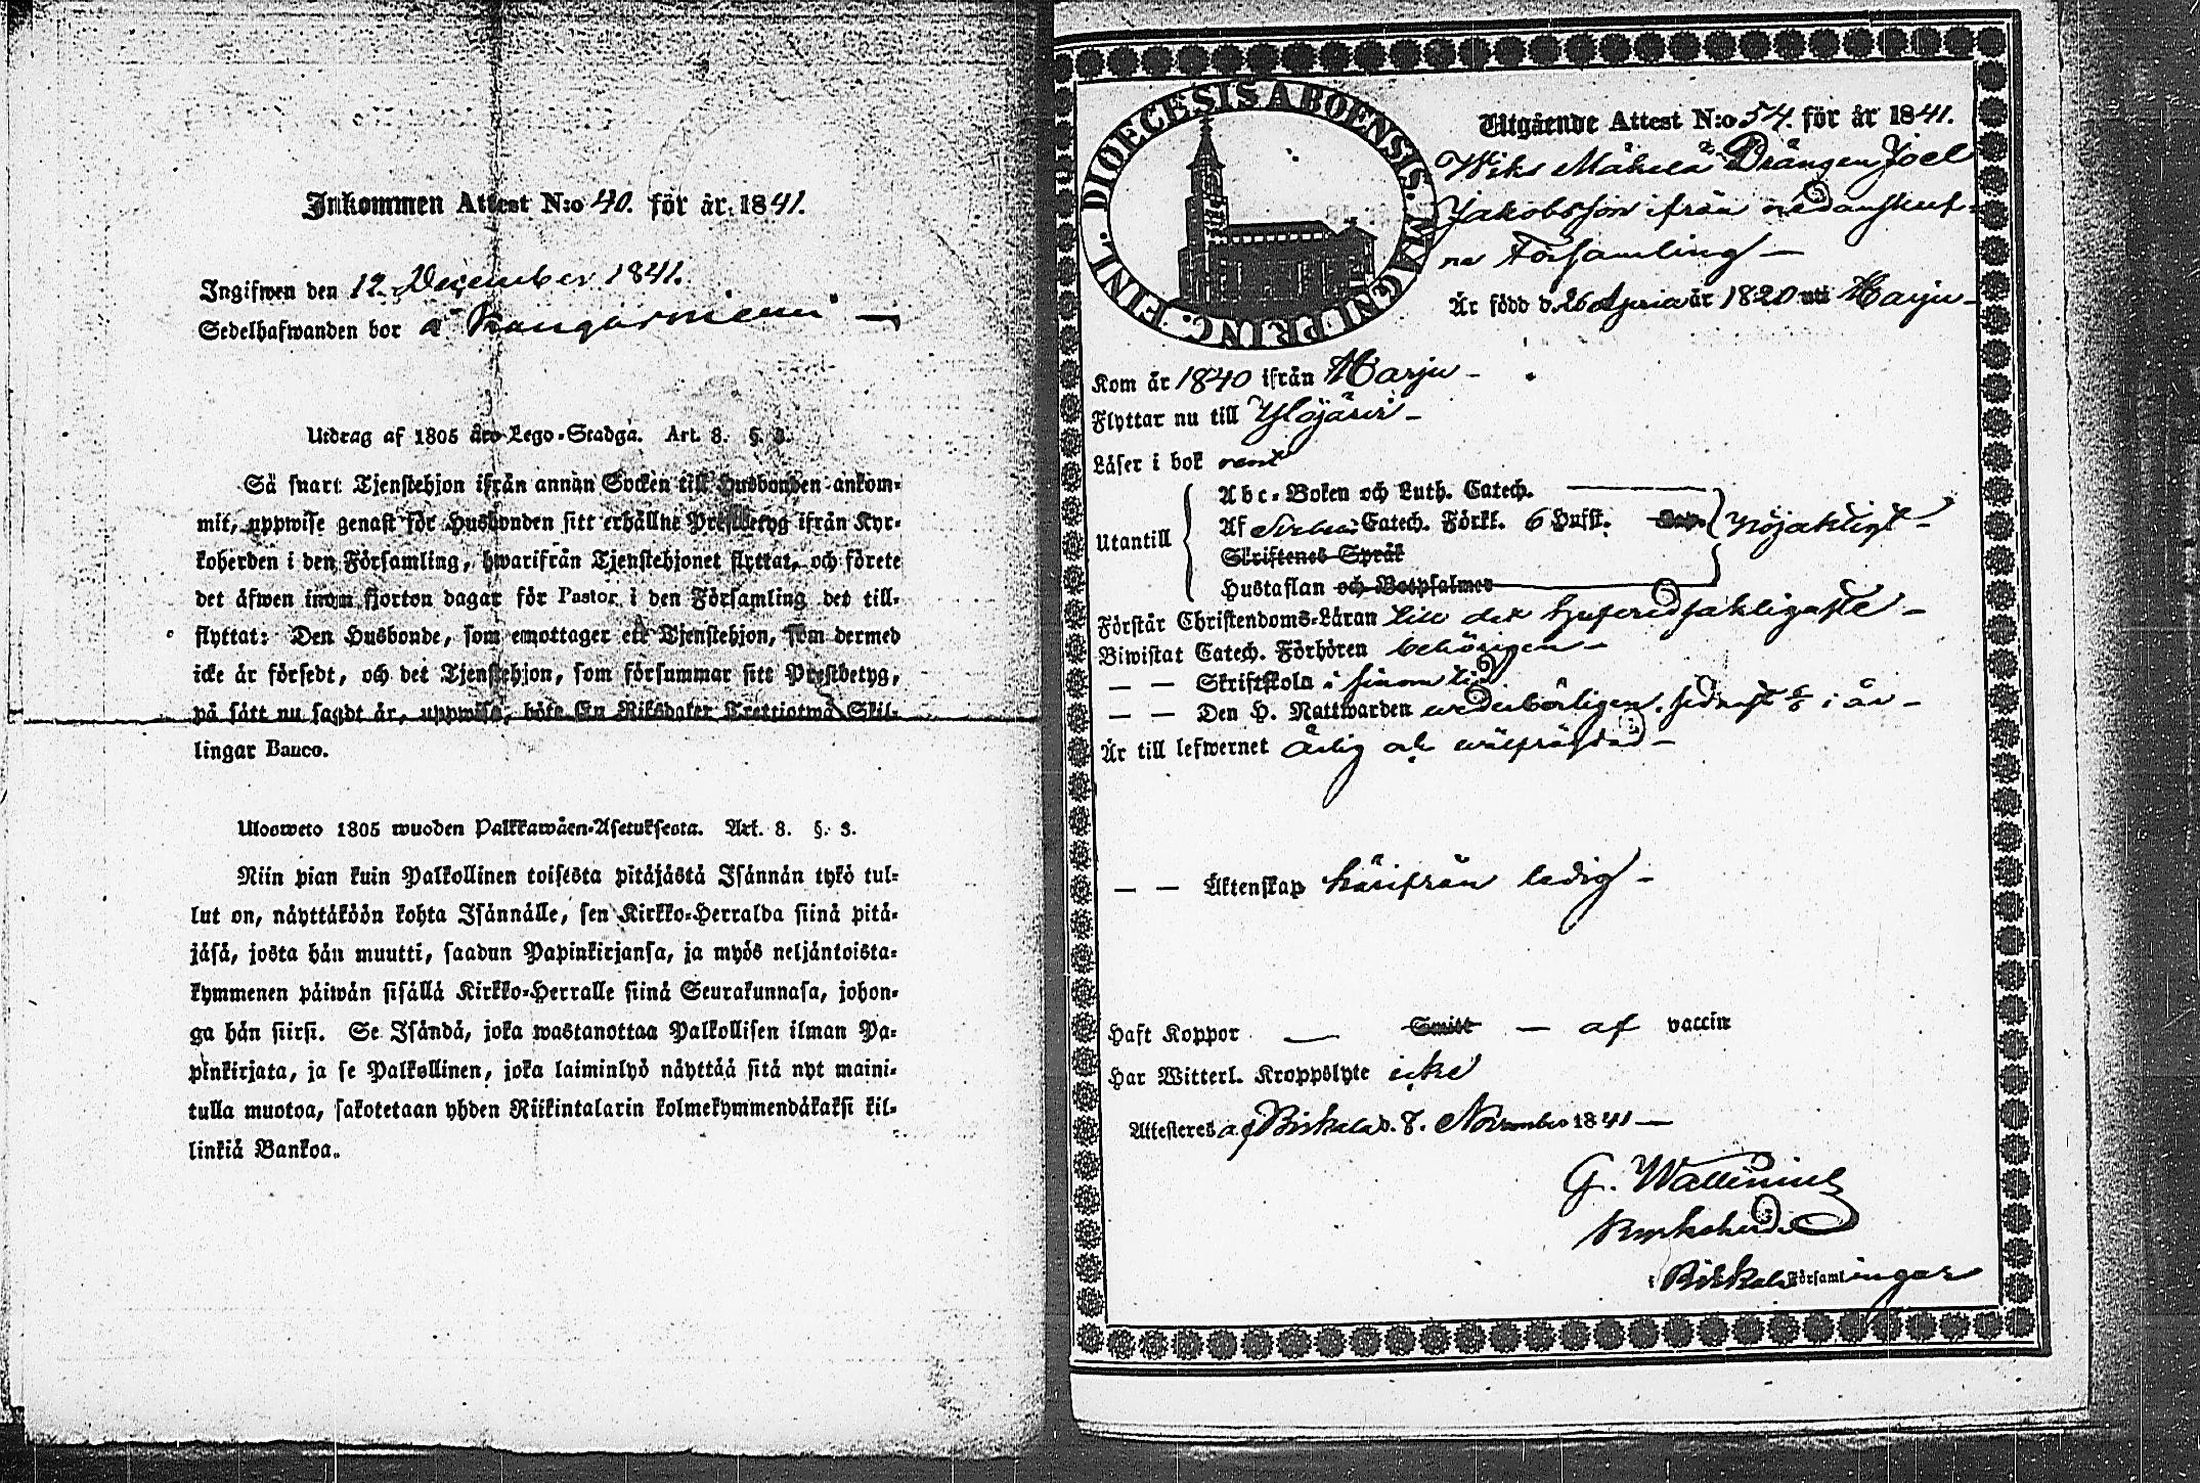 Inkommen Attest N:o 40. för år 1841.
Ingifwen den 12 December 1841.
Sedelhafwanden bor å Kangasniemi —
Utdrag af 1805 års Lego-Stadga. Art. 8. §. 3.
Så snart Tjenstehjon ifrån annan Socken till Husbonden ankom-
mit, uppwise genast för Husbonden sitt erhållne Prestbetyg ifrån Kyr-
koherden i den Församling, hwarifrån Tjenstehjonet flyttat, och förete
det äfwen inom fjorton dagar för Pastor i den Församling det till-
flyttat: Den Husbonde, som emottager ett Tjenstehjon, som dermed
icke är försedt, och det Tjenstehjon, som försummar sitt Prestbetyg,
på sätt nu sagdt är, uppwisa, böte En Riksdaler Trettiotwå Skil-
lingar Banco.
Ulosweto 1805 wuoden Palkkawäen-Asetuksesta. Art. 8. §. 3.
Niin pian kuin Palkollinen toisesta pitäjästä Isännän tykö tul-
lut on, näyttäköön kohta Isännälle, sen Kirkko-Herralda siinä pitä-
jäsä, josta hän muutti, saadun Papinkirjansa, ja myös neljäntoista-
kymmenen päiwän sisällä Kirkko-Herralle siinä Seurakunnasa, johon-
ga hän siirsi. Se Isändä, joka wastanottaa Palkollisen ilman Pa-
pinkirjata, ja se Palkollinen, joka laiminlyö näyttää sitä nyt maini-
tulla muotoa, sakotetaan yhden Riikintalarin kolmekymmendäkaksi kil-
linkiä Bankoa.
DIOECESIS ABOENSIS. MAGNI PRINC. FINL.
Utgående Attest N:o 54. för år 1841.
Wiks Mäkelä Drängen Joel
Jakobsson ifrån nedanskref-
na Församling —
Är född d. 26 Aprill år 1820 uti Harju —
Kom år 1840 ifrån Harju —
Flyttar nu till Ylöjärvi —
Läser i bok rent
Utantill
Abc-Boken och Luth. Catech.
Af Svebelii Catech. Förkl. 6 Hufst. Cap. Nöjaktigt —
Skriftenes Språk
Hustaflan och Botpsalmer
Förstår Christendoms-Läran till det hufvudsakligaste —
Biwistat Catech. Förhören behörigen —
— — Skriftskola i sinom tid
— — Den H. Nattwarden wederbörligen, sednast i år —
Är till lefwernet Ärlig och wälfrägdad —
— — Äktenskap härifrån ledig —
Haft Koppor — Smitt — af vaccin
Har Witterl. Kroppslyte icke
Attesteres af Birkala d. 8. November 1841 —
G. Wallenius
Kyrkoherde
i Birkala Församlingar